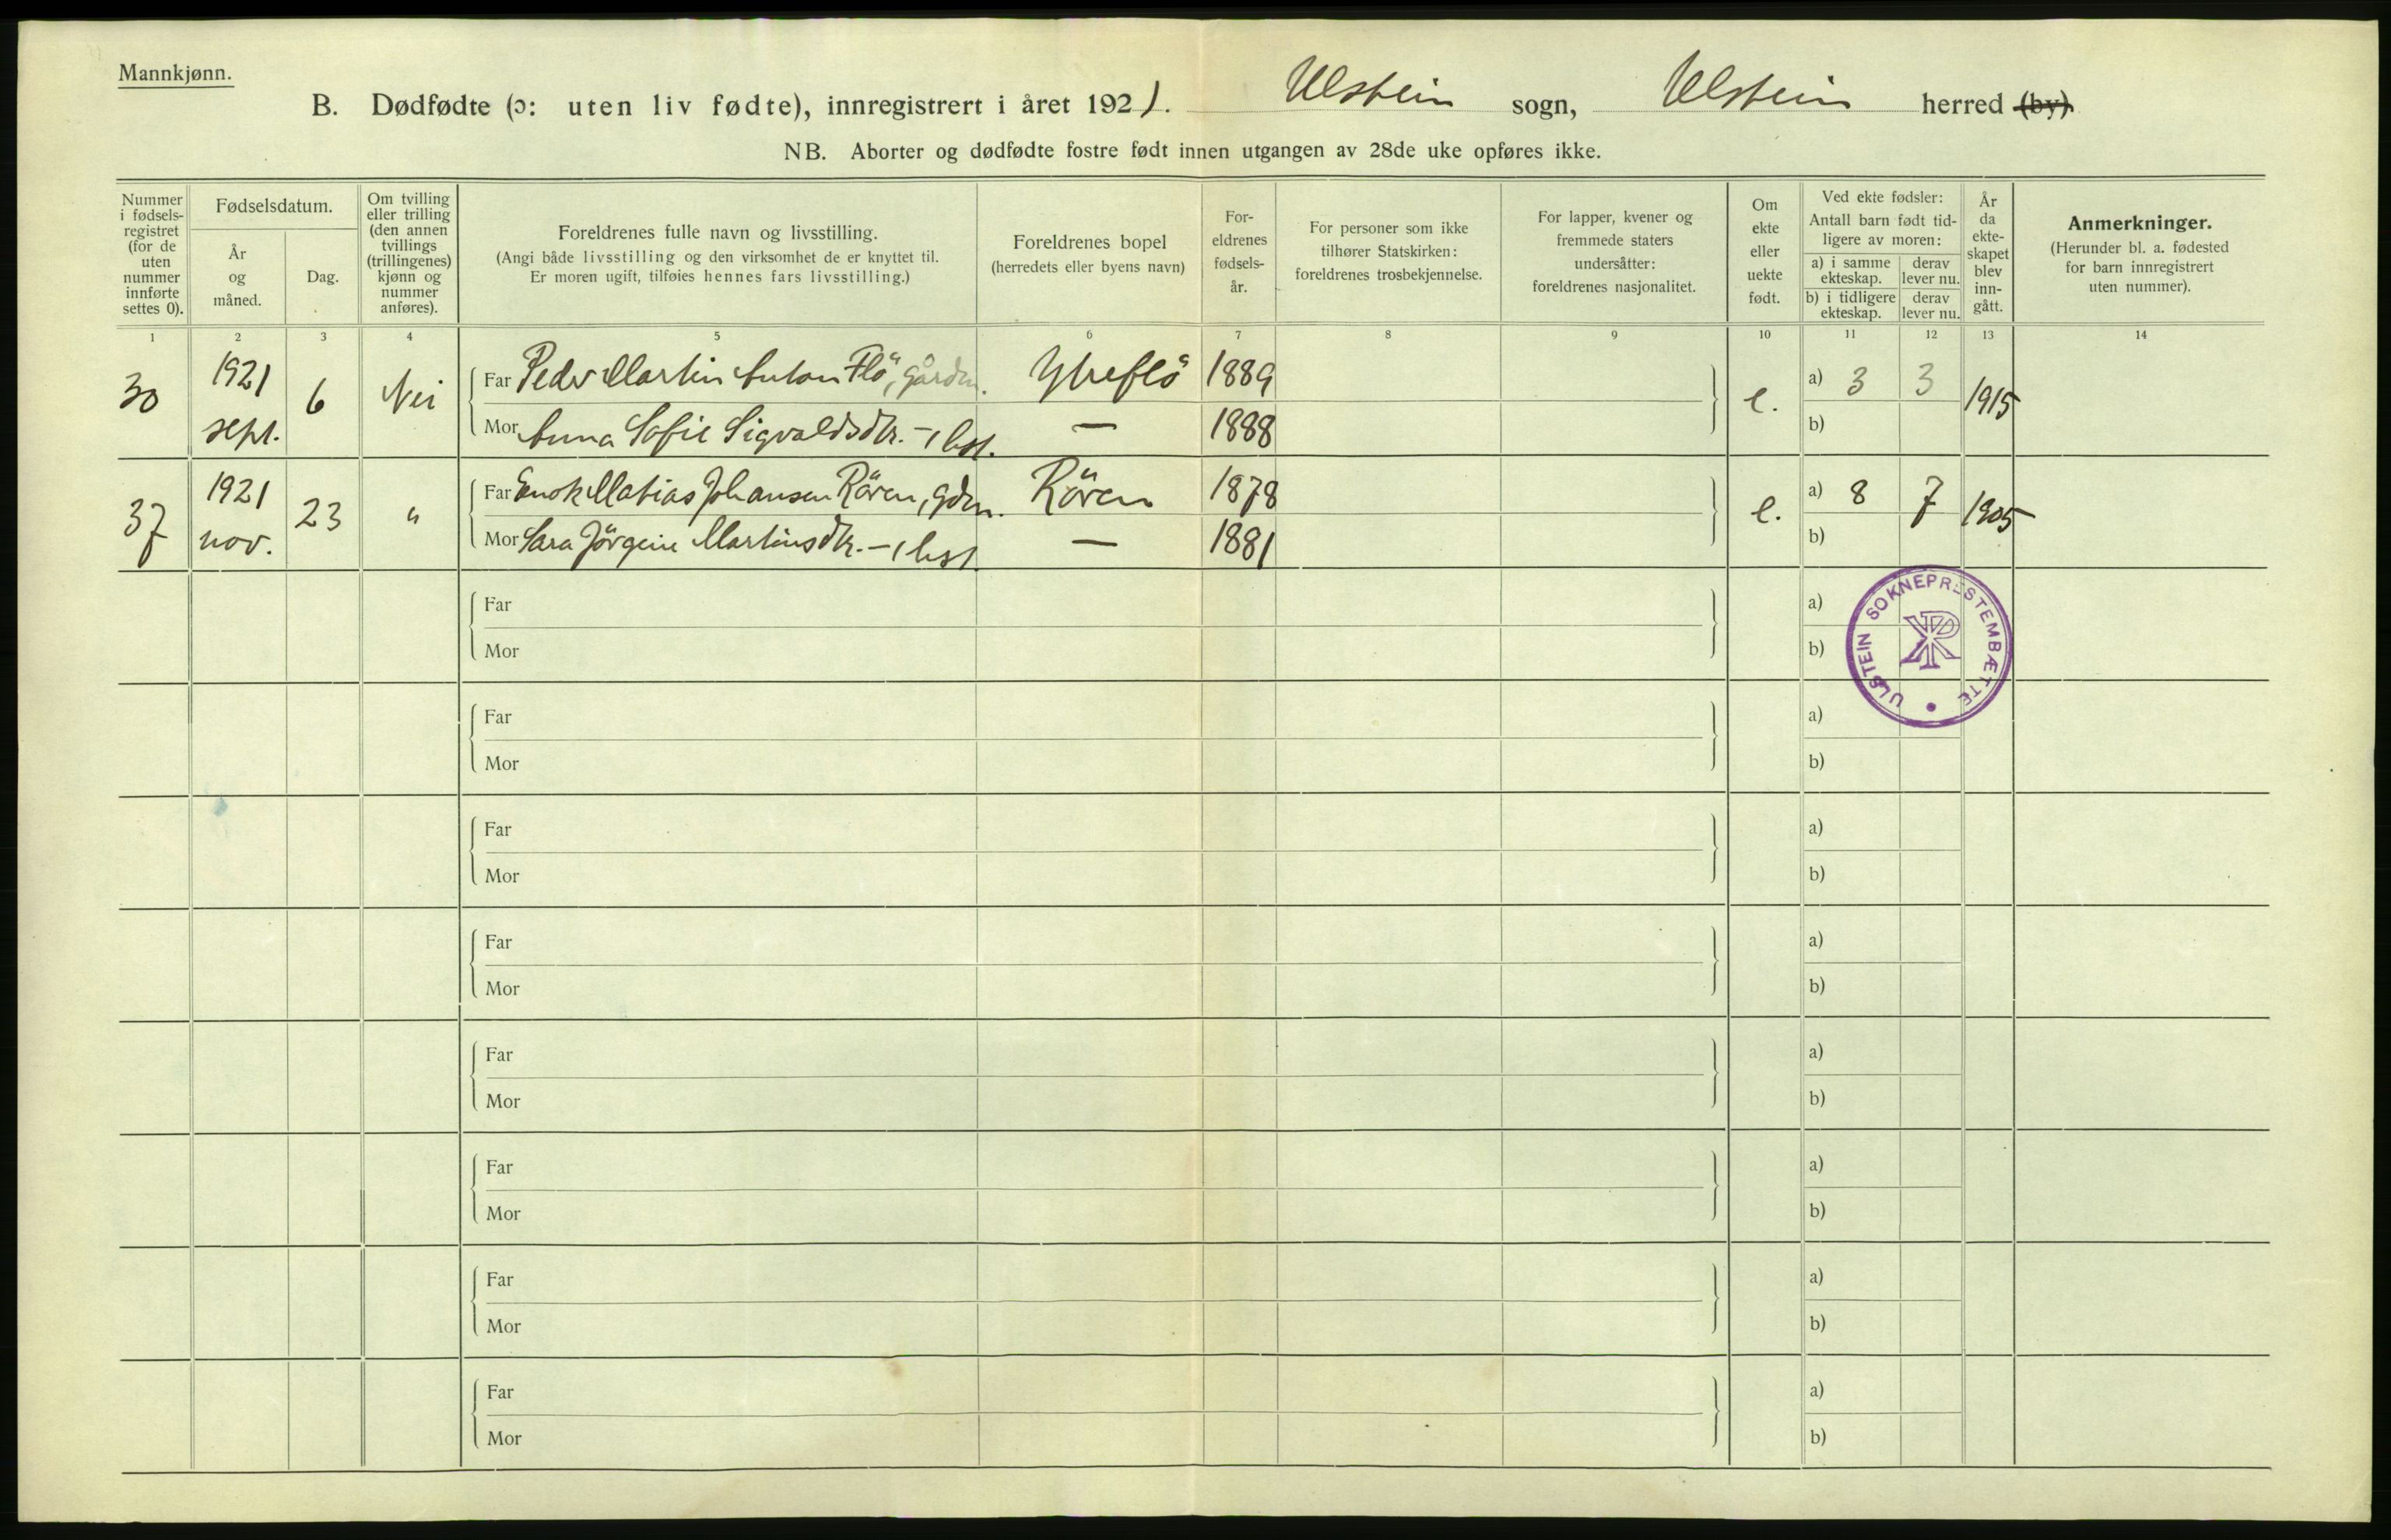 Mannkjønn.
B. Dødfødte (ɔ: uten liv fødte), innregistrert i året 1921. Ulstein sogn, Ulstein herred (by)
NB. Aborter og dødfødte fostre født innen utgangen av 28de uke opføres ikke.
Nummer i fødsels- registret (for de uten nummer innførte settes 0).
Fødselsdatum.
År og måned.
Dag.
Om tvilling eller trilling (den annen tvillings (trillingenes) kjønn og nummer anføres).
Foreldrenes fulle navn og livsstilling.
(Angi både livsstilling og den virksomhet de er knyttet til.
Er moren ugift, tilføies hennes fars livsstilling.)
Foreldrenes bopel
(herredets eller byens navn)
For- eldrenes fødsels- år.
For personer som ikke tilhører Statskirken: foreldrenes trosbekjennelse.
For lapper, kvener og fremmede staters undersåtter: foreldrenes nasjonalitet.
Om ekte eller uekte født.
Ved ekte fødsler:
Antall barn født tid- ligere av moren:
a) i samme ekteskap.
derav lever nu.
b) i tidligere ekteskap.
derav lever nu.
År da ekte- skapet blev inn- gått.
Anmerkninger.
(Herunder bl. a. fødested for barn innregistrert uten nummer).
1 2 3 4 5 6 7 8 9 10 11 12 13 14
30 1921 sept. 6 Nei
Far Peder Martin Anton Flö, gårdm. Ytreflö 1889
e. a) 3 3 1915
Mor Anna Sofie Sigvaldsdtr. — 1888
b)
37 1921 nov. 23 "
Far Enok Matias Johansen Rören, gdm. Rören 1878
e. a) 8 7 1905
Mor Sara Jörgine Martinsdtr. — 1881
b)
Far a)
Mor b)
ULSTEIN SOKNEPRESTEMBÆTTE
Far a)
Mor b)
Far a)
Mor b)
Far a)
Mor b)
Far a)
Mor b)
Far a)
Mor b)
Far a)
Mor b)
Far a)
Mor b)